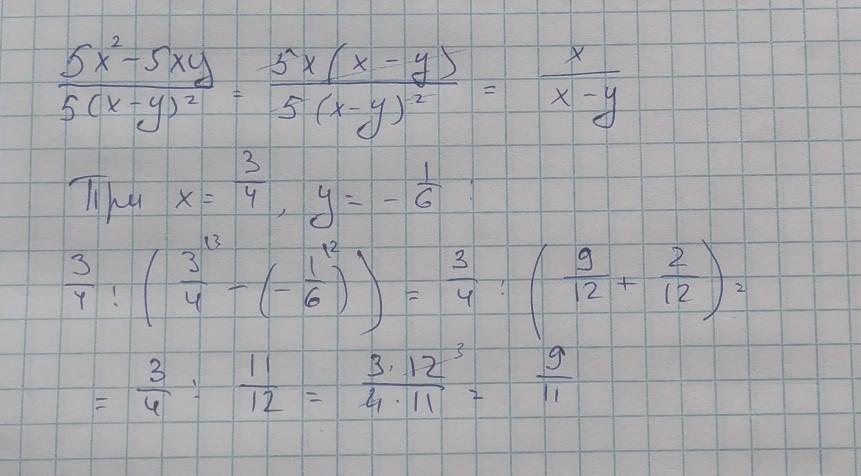 (5x² - 5xy)/(5(x-y)²) = (5x(x-y))/(5(x-y)²) = x/(x-y)
При x = 3/4, y = -1/6:
3/4 : (3/4 \3 - (-1/6 \2)) = 3/4 : (9/12 + 2/12) =
= 3/4 : 11/12 = (3·12 3)/(4·11) = 9/11